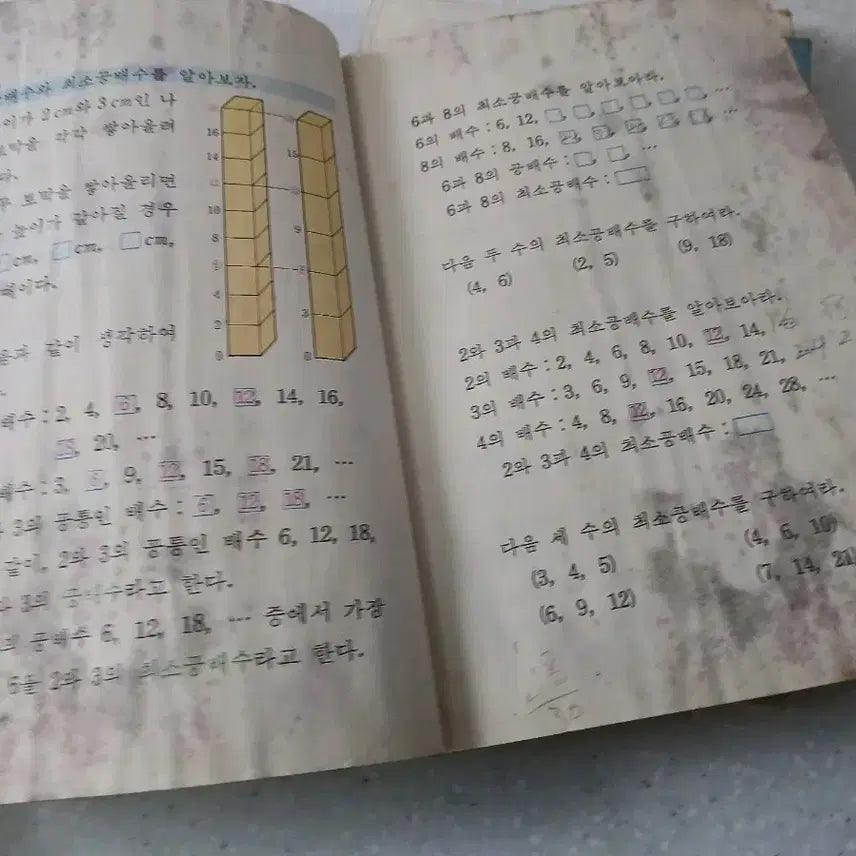 배수와 최소공배수를 알아보자.
이가 2cm와 3cm인 나
토막을 각각 쌓아올려
다.
토막을 쌓아올리면
높이가 같아질 경우
□cm, □cm, □cm,
이다.
과 같이 생각하여
16
14
12
10
8
6
4
2
0
15
12
9
6
3
0
배수 : 2, 4, 6, 8, 10, 12, 14, 16,
18, 20, …
배수 : 3, 6, 9, 12, 15, 18, 21, …
3의 공통인 배수 : 6, 12, 18, …
같이, 2와 3의 공통인 배수 6, 12, 18,
와 3의 공배수라고 한다.
의 공배수 6, 12, 18, … 중에서 가장
6을 2와 3의 최소공배수라고 한다.
6과 8의 최소공배수를 알아보아라.
6의 배수 : 6, 12, □, □, □, □, □, □, …
8의 배수 : 8, 16, □, □, □, □, □, …
6과 8의 공배수 : □, □, …
6과 8의 최소공배수 : □
다음 두 수의 최소공배수를 구하여라.
(4, 6) (2, 5) (9, 18)
2와 3과 4의 최소공배수를 알아보아라.
2의 배수 : 2, 4, 6, 8, 10, 12, 14,
3의 배수 : 3, 6, 9, 12, 15, 18, 21,
4의 배수 : 4, 8, 12, 16, 20, 24, 28, …
2와 3과 4의 최소공배수 : □
다음 세 수의 최소공배수를 구하여라.
(3, 4, 5) (4, 6, 10)
(6, 9, 12) (7, 14, 21)